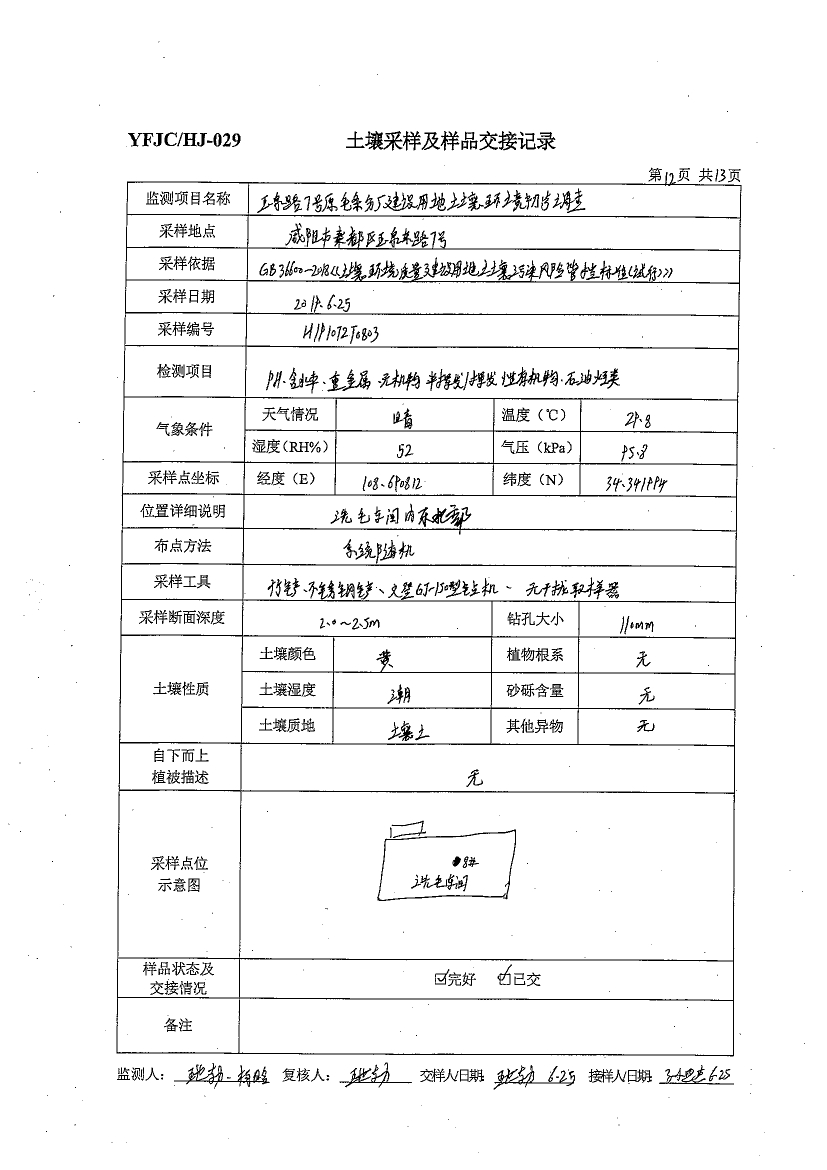 YFJC/HJ-029 土壤采样及样品交接记录
第12页 共13页
监测项目名称 玉泉路7号原毛条分厂建设用地土壤环境初步调查
采样地点 咸阳市秦都区玉泉东路7号
采样依据 GB36600-2018《土壤环境质量建设用地土壤污染风险管控标准(试行)》
采样日期 2019.6.25
采样编号
检测项目 PH、含水率、重金属、无机物 半挥发/挥发性有机物、石油烃类
气象条件 天气情况 晴 温度（℃） 29.8
湿度（RH%） 52 气压（kPa） 95.8
采样点坐标 经度（E） 108.690812 纬度（N） 34.341994
位置详细说明 洗毛车间内东北部
布点方法 系统随机
采样工具 竹铲、不锈钢铲、 GJ-150型钻机、无干扰取样器
采样断面深度 2.0～2.5m 钻孔大小 110mm
土壤性质 土壤颜色 黄 植物根系 无
土壤湿度 潮 砂砾含量 无
土壤质地 土壤土 其他异物 无
自下而上
植被描述 无
采样点位
示意图
8#
洗毛车间
样品状态及
交接情况 ☑完好 ☑已交
备注
监测人： 复核人： 交样人/日期: 6.25 接样人/日期: 6.25